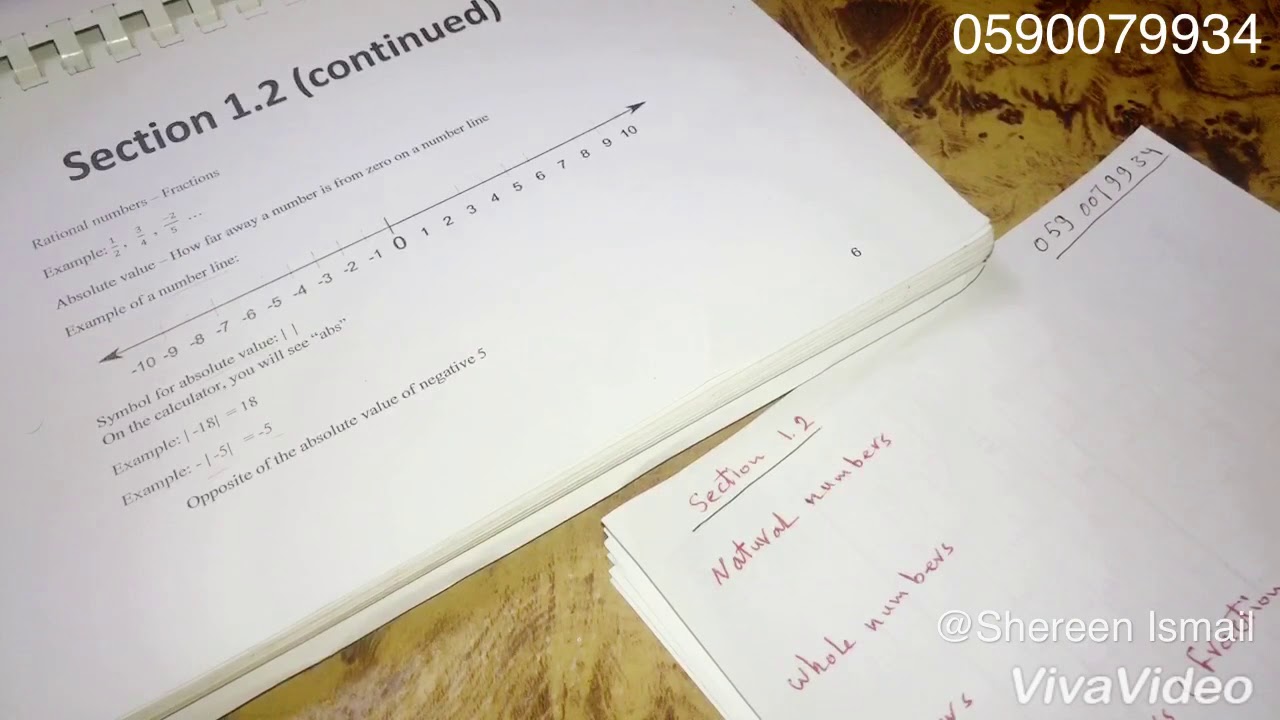 0590079934
Section 1.2 (continued)
Rational numbers – Fractions
Example: 1/2, 3/4, -2/5 ...
Absolute value – How far away a number is from zero on a number line
Example of a number line:
-10 -9 -8 -7 -6 -5 -4 -3 -2 -1 0 1 2 3 4 5 6 7 8 9 10
Symbol for absolute value: | |
On the calculator, you will see “abs”
Example: | -18| = 18
Example: - | -5| = -5
Opposite of the absolute value of negative 5
6
059 0079934
Section 1.2
Natural numbers
whole numbers
@Shereen Ismail
VivaVideo